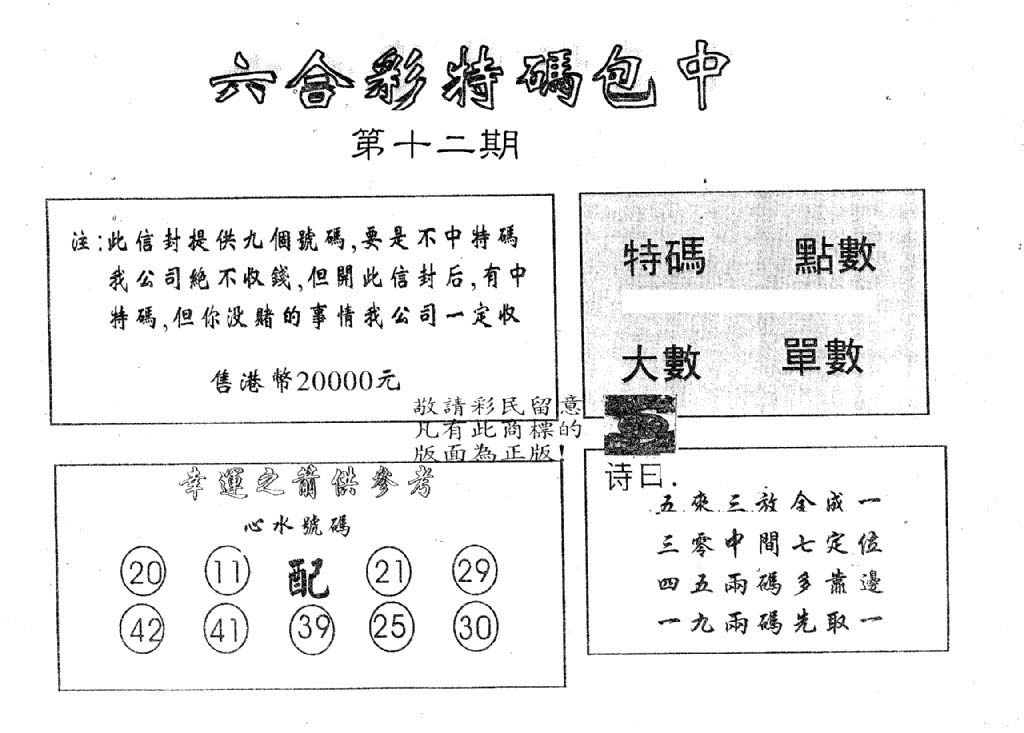 六合彩特碼包中
第十二期
注:此信封提供九個號碼,要是不中特碼
我公司絕不收錢,但開此信封后,有中
特碼,但你没賭的事情我公司一定收
售港幣20000元
特碼 點數
大數 單數
敬請彩民留意
凡有此商標的
版面為正版!
幸運之箭供參考
心水號碼
20 11 配 21 29
42 41 39 25 30
诗曰.
五來三放全成一
三零中間七定位
四五兩碼多靠邊
一九兩碼先取一